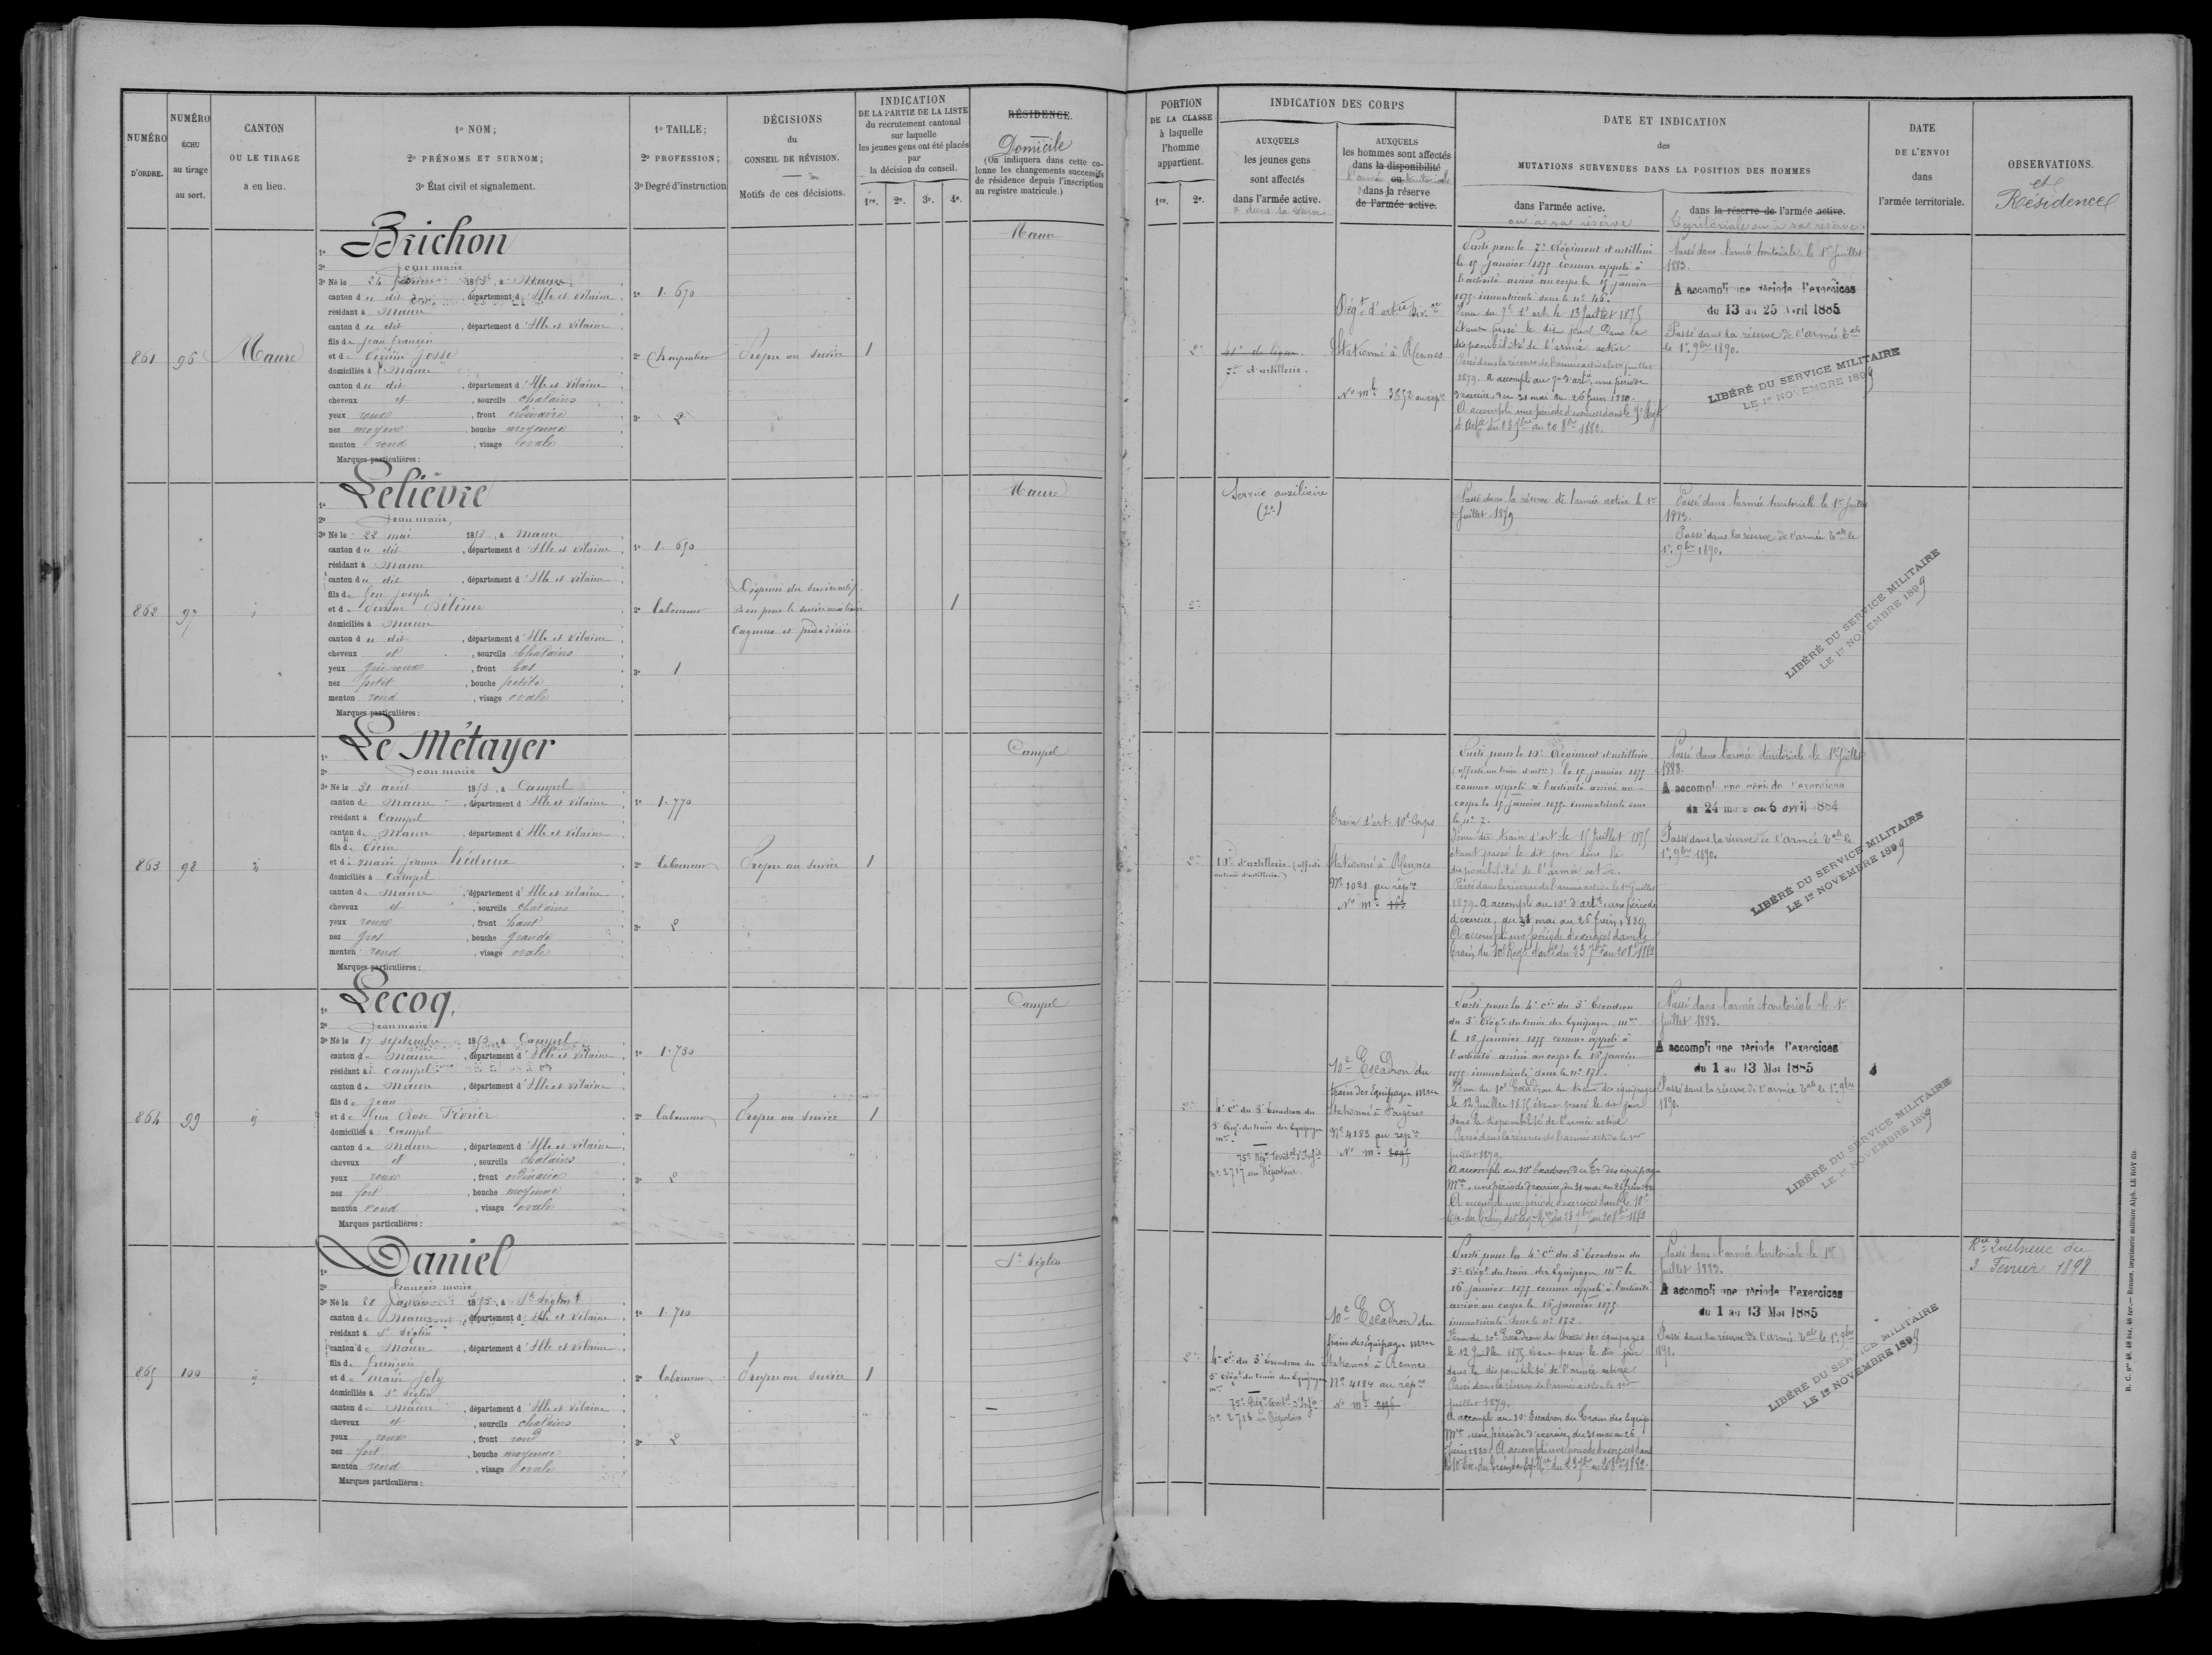 NUMÉRO D'ORDRE.
NUMÉRO ÉCHU au tirage au sort.
CANTON OU LE TIRAGE a eu lieu.
1º NOM;
2º PRÉNOMS ET SURNOM;
3º État civil et signalement.
1º TAILLE;
2º PROFESSION;
3º Degré d'instruction
DÉCISIONS
du
CONSEIL DE RÉVISION.
Motifs de ces décisions.
INDICATION
DE LA PARTIE DE LA LISTE
du recrutement cantonal
sur laquelle
les jeunes gens ont été placés
par
la décision du conseil.
1re. 2e. 3e. 4e.
RÉSIDENCE.
Domicile
(On indiquera dans cette co-
lonne les changements successifs
de résidence depuis l'inscription
au registre matricule.)
PORTION
DE LA CLASSE
à laquelle
l'homme
appartient.
1re. 2e.
INDICATION DES CORPS
AUXQUELS
les jeunes gens
sont affectés
dans l'armée active.
AUXQUELS
les hommes sont affectés
dans la disponibilité
ou
dans la réserve
de l'armée active.
DATE ET INDICATION
des
MUTATIONS SURVENUES DANS LA POSITION DES HOMMES
dans l'armée active.
ou à sa réserve
dans la réserve de l'armée active.
Territoriale ou à sa réserve.
DATE
DE L'ENVOI
dans
l'armée territoriale.
OBSERVATIONS.
et
Résidence
861 96 Maure
1º Brichon
2º Jean marie
3º Né le 24 1853, à Maure
canton du dit, département d'Ille et Vilaine
résidant à Maure
canton du dit, département d'Ille et Vilaine
fils de Jean François
et de Josse
domiciliés à Maure
canton du dit, département d'Ille et Vilaine
cheveux et, sourcils chatains
yeux roux, front ordinaire
nez moyen, bouche moyenne
menton rond, visage ovale
Marques particulières :
1º 1.670
2º Charpentier
3º 2
Propre au service
1
Maure
2e
7e d'artillerie.
Régt d'artrie
Stationné à Rennes
No mle 3852 au rép.
Parti pour le 7e Régiment d'artillerie
le 15 janvier 1875 comme appelé à
l'activité arrivé au corps le 15 janvier
1875 immatriculé sous le nº 46.
Venu du 7e d'art. le 13 juillet 1875
étant passé le dit jour dans la
disponibilité de l'armée active
Passé dans la réserve de l'armée active le 1er juillet
1879. A accompli au 7e d'artie une période
d'exercice, du 31 mai au 26 juin 1880.
A accompli une période d'exercices dans le 7e Régt
d'Artie du 23 7bre au 20 8bre 1882.
Passé dans l'armée territoriale le 1er Juillet
1883.
A accompli une période d'exercices
du 13 au 25 Avril 1885
Passé dans la réserve de l'armée tale
le 1er 9bre 1890.
LIBÉRÉ DU SERVICE MILITAIRE
LE 1er NOVEMBRE 1899
862 97
1º Lelièvre
2º Jean marie
3º Né le 22 mai 1853, à Maure
canton du dit, département d'Ille et Vilaine
résidant à Maure
canton du dit, département d'Ille et Vilaine
fils de feu Joseph
et de
domiciliés à Maure
canton du dit, département d'Ille et Vilaine
cheveux et, sourcils chatains
yeux gris roux, front bas
nez petit, bouche petite
menton rond, visage ovale
Marques particulières :
1º 1.650
2º laboureur
3º 1
Dispensé du service actif
Bon pour le service auxiliaire
1
Maure
2e
Service auxiliaire
(2e)
Passé dans la réserve de l'armée active le 1er
Juillet 1879
Passé dans l'armée territoriale le 1er Juillet
1883.
Passé dans la réserve de l'armée tale le
1er 9bre 1890.
LIBÉRÉ DU SERVICE MILITAIRE
LE 1er NOVEMBRE 1899
863 98
1º Le Métayer
2º Jean marie
3º Né le 31 août 1853, à Campel
canton de Maure, département d'Ille et Vilaine
résidant à Campel
canton de Maure, département d'Ille et Vilaine
fils de Pierre
et de marie jeanne hédreux
domiciliés à Campel
canton de Maure, département d'Ille et Vilaine
cheveux et, sourcils chatains
yeux roux, front haut
nez gros, bouche grande
menton rond, visage ovale
Marques particulières :
1º 1.770
2º laboureur
3º 2
Propre au service
1
Campel
2e
10e d'artillerie (affecté
au train d'artillerie.)
Train d'art. 10e Corps
Stationné à Rennes
Nº 1021 au répre
No mle 103
Parti pour le 10e Régiment d'artillerie
(affecté au train d'artie) le 15 janvier 1875
comme appelé à l'activité arrivé au
corps le 15 janvier 1875 immatriculé sous
le nº 2.
Venu du train d'art. le 15 juillet 1875
étant passé le dit jour dans la
disponibilité de l'armée active.
Passé dans la réserve de l'armée active le 1er juillet
1879. A accompli au 10e d'artie une période
d'exercice, du 31 mai au 26 juin 1880
A accompli une période d'exercices dans le
train du 10e Régt d'artie du 23 7bre au 20 8bre 1882
Passé dans l'armée territoriale le 1er Juillet
1883.
A accompli une période d'exercices
du 24 mars au 5 avril 1884
Passé dans la réserve de l'armée tale le
1er 9bre 1890.
LIBÉRÉ DU SERVICE MILITAIRE
LE 1er NOVEMBRE 1899
864 99
1º Lecoq,
2º Jean marie
3º Né le 17 septembre 1853, à Campel
canton de Maure, département d'Ille et Vilaine
résidant à Campel
canton de Maure, département d'Ille et Vilaine
fils de Jean
et de feue Rose Février
domiciliés à Campel
canton de Maure, département d'Ille et Vilaine
cheveux et, sourcils chatains
yeux roux, front ordinaire
nez fort, bouche moyenne
menton rond, visage ovale
Marques particulières :
1º 1.730
2º laboureur
3º 2
Propre au service
1
Campel
2e
4e Cie du 3e Escadron du
5e Régt du train des Equipages
mres
75e Régt Territal d'Infie
nº 2717 au Répertoire
10e Escadron du
train des Equipages mres
Stationné à Fougères
Nº 4183 au répre
No mle
Parti pour la 4e Cie du 3e Escadron
du 5e Régt du train des Equipages mres
le 16 janvier 1875 comme appelé à
l'activité arrivé au corps le 16 janvier
1875 immatriculé sous le nº 171.
Venu du 10e Escadron du train des équipages
le 12 Juillet 1875 étant passé le dit jour
dans la disponibilité de l'armée active
Passé dans la réserve de l'armée active le 1er
juillet 1879.
A accompli au 10e Escadron du Tr. des équipages
Mres, une période d'exercice, du 31 mai au 26 juin 1880
A accompli une période d'exercices dans le 10e
Esc. du Train des Eq. Mres du 23 7bre au 20 8bre 1882
Passé dans l'armée territoriale le 1er
Juillet 1883.
A accompli une période d'exercices
du 1 au 13 Mai 1885
Passé dans la réserve de l'armée tale le 1er 9bre
1890.
LIBÉRÉ DU SERVICE MILITAIRE
LE 1er NOVEMBRE 1899
865 100
1º Daniel
2º François marie
3º Né le 28 1853, à St Séglin
canton de Maure, département d'Ille et Vilaine
résidant à St Séglin
canton de Maure, département d'Ille et Vilaine
fils de François
et de marie Joly
domiciliés à St Séglin
canton de Maure, département d'Ille et Vilaine
cheveux et, sourcils chatains
yeux roux, front rond
nez fort, bouche moyenne
menton rond, visage ovale
Marques particulières :
1º 1.710
2º laboureur
3º 2
Propre au service
1
St Séglin
2e
4e Cie du 3e Escadron du
5e Régt du train des Equipages
mres
75e Régt Territal d'Infie
nº 2718 au Répertoire
10e Escadron du
train des Equipages mres
Stationné à Rennes
Nº 4184 au répre
No mle
Parti pour la 4e Cie du 3e Escadron du
5e Régt du train des Equipages mres le
16 janvier 1875 comme appelé à l'activité
arrivé au corps le 16 janvier 1875
immatriculé sous le nº 172.
Venu du 10e Escadron du train des équipages
le 12 Juillet 1875 étant passé le dit jour
dans la disponibilité de l'armée active
Passé dans la réserve de l'armée active le 1er
juillet 1879.
A accompli au 10e Escadron du Train des Equip.
Mres, une période d'exercice, du 31 mai au 26
Juin 1880. A accompli une période d'exercices dans
le 10e Esc. du Train des Eq. Mres du 23 7bre au 20 8bre 1882.
Passé dans l'armée territoriale le 1er
Juillet 1883.
A accompli une période d'exercices
du 1 au 13 Mai 1885
Passé dans la réserve de l'armée tale le 1er 9bre
1890.
LIBÉRÉ DU SERVICE MILITAIRE
LE 1er NOVEMBRE 1899
Rce Quelneuc du
3 Février 1898
R. C. nos 48, 48 bis, 48 ter.— Rennes, imprimerie militaire Alph. LE ROY fils